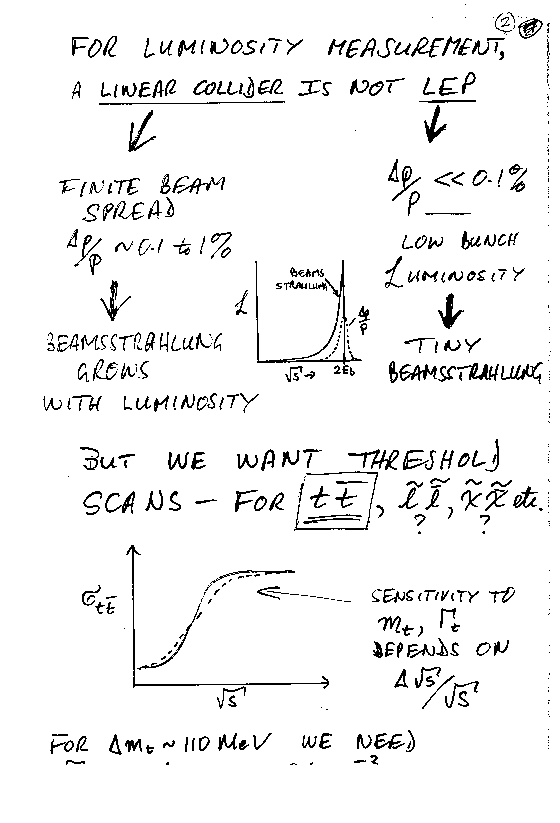 2
FOR LUMINOSITY MEASUREMENT,
A LINEAR COLLIDER IS NOT LEP
FINITE BEAM
SPREAD
Δp/p ~ 0.1 to 1%
BEAMSSTRAHLUNG
GROWS
WITH LUMINOSITY
L
BEAMS
STRAHLUNG
Δp/p
√s →
2Eb
Δp/p << 0.1%
LOW BUNCH
LUMINOSITY
TINY
BEAMSSTRAHLUNG
BUT WE WANT THRESHOLD
SCANS – FOR t t̅, l̃ l̃̅, χ̃ χ̃ etc.
? ?
σ t t̅
√s
SENSITIVITY TO
mt, Γt
DEPENDS ON
Δ√s/√s
FOR Δmt ~ 110 MeV WE NEED